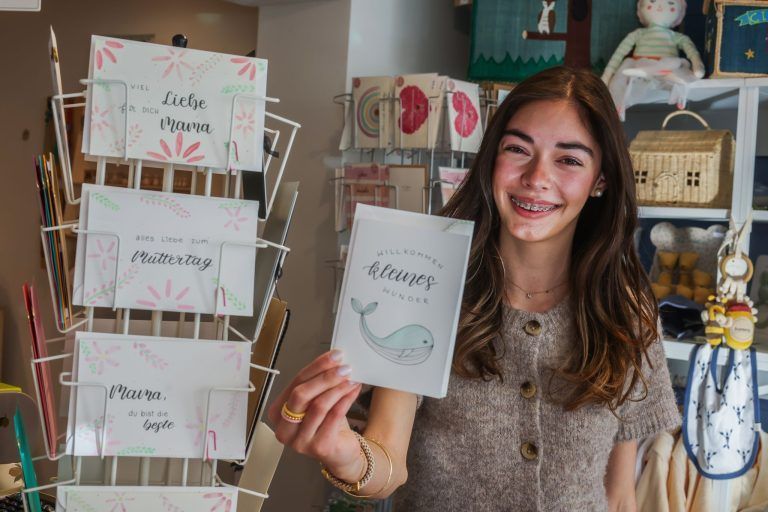 VIEL
für DICH
Liebe
Mama
alles Liebe zum
Muttertag
Mama,
du bist die
beste
WILLKOMMEN
kleines
WUNDER